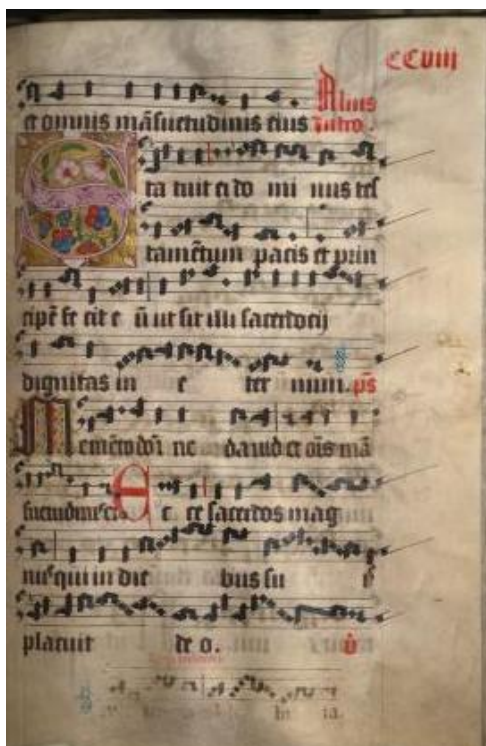 CCVIII
et omnis mãsuetudinis eius Alius Intro.
Sta tuit ei do mi nus tes
tamẽtum pacis et prin
cipẽ fe cit e ũ ut sit illi sacerdocij
dignitas in e ter num. p̃s
Memẽto dñi ne dauid et oĩs mã
suetudinis eius Ec ce sacerdos mag
nus qui in die bus su
placuit de o.
ia.